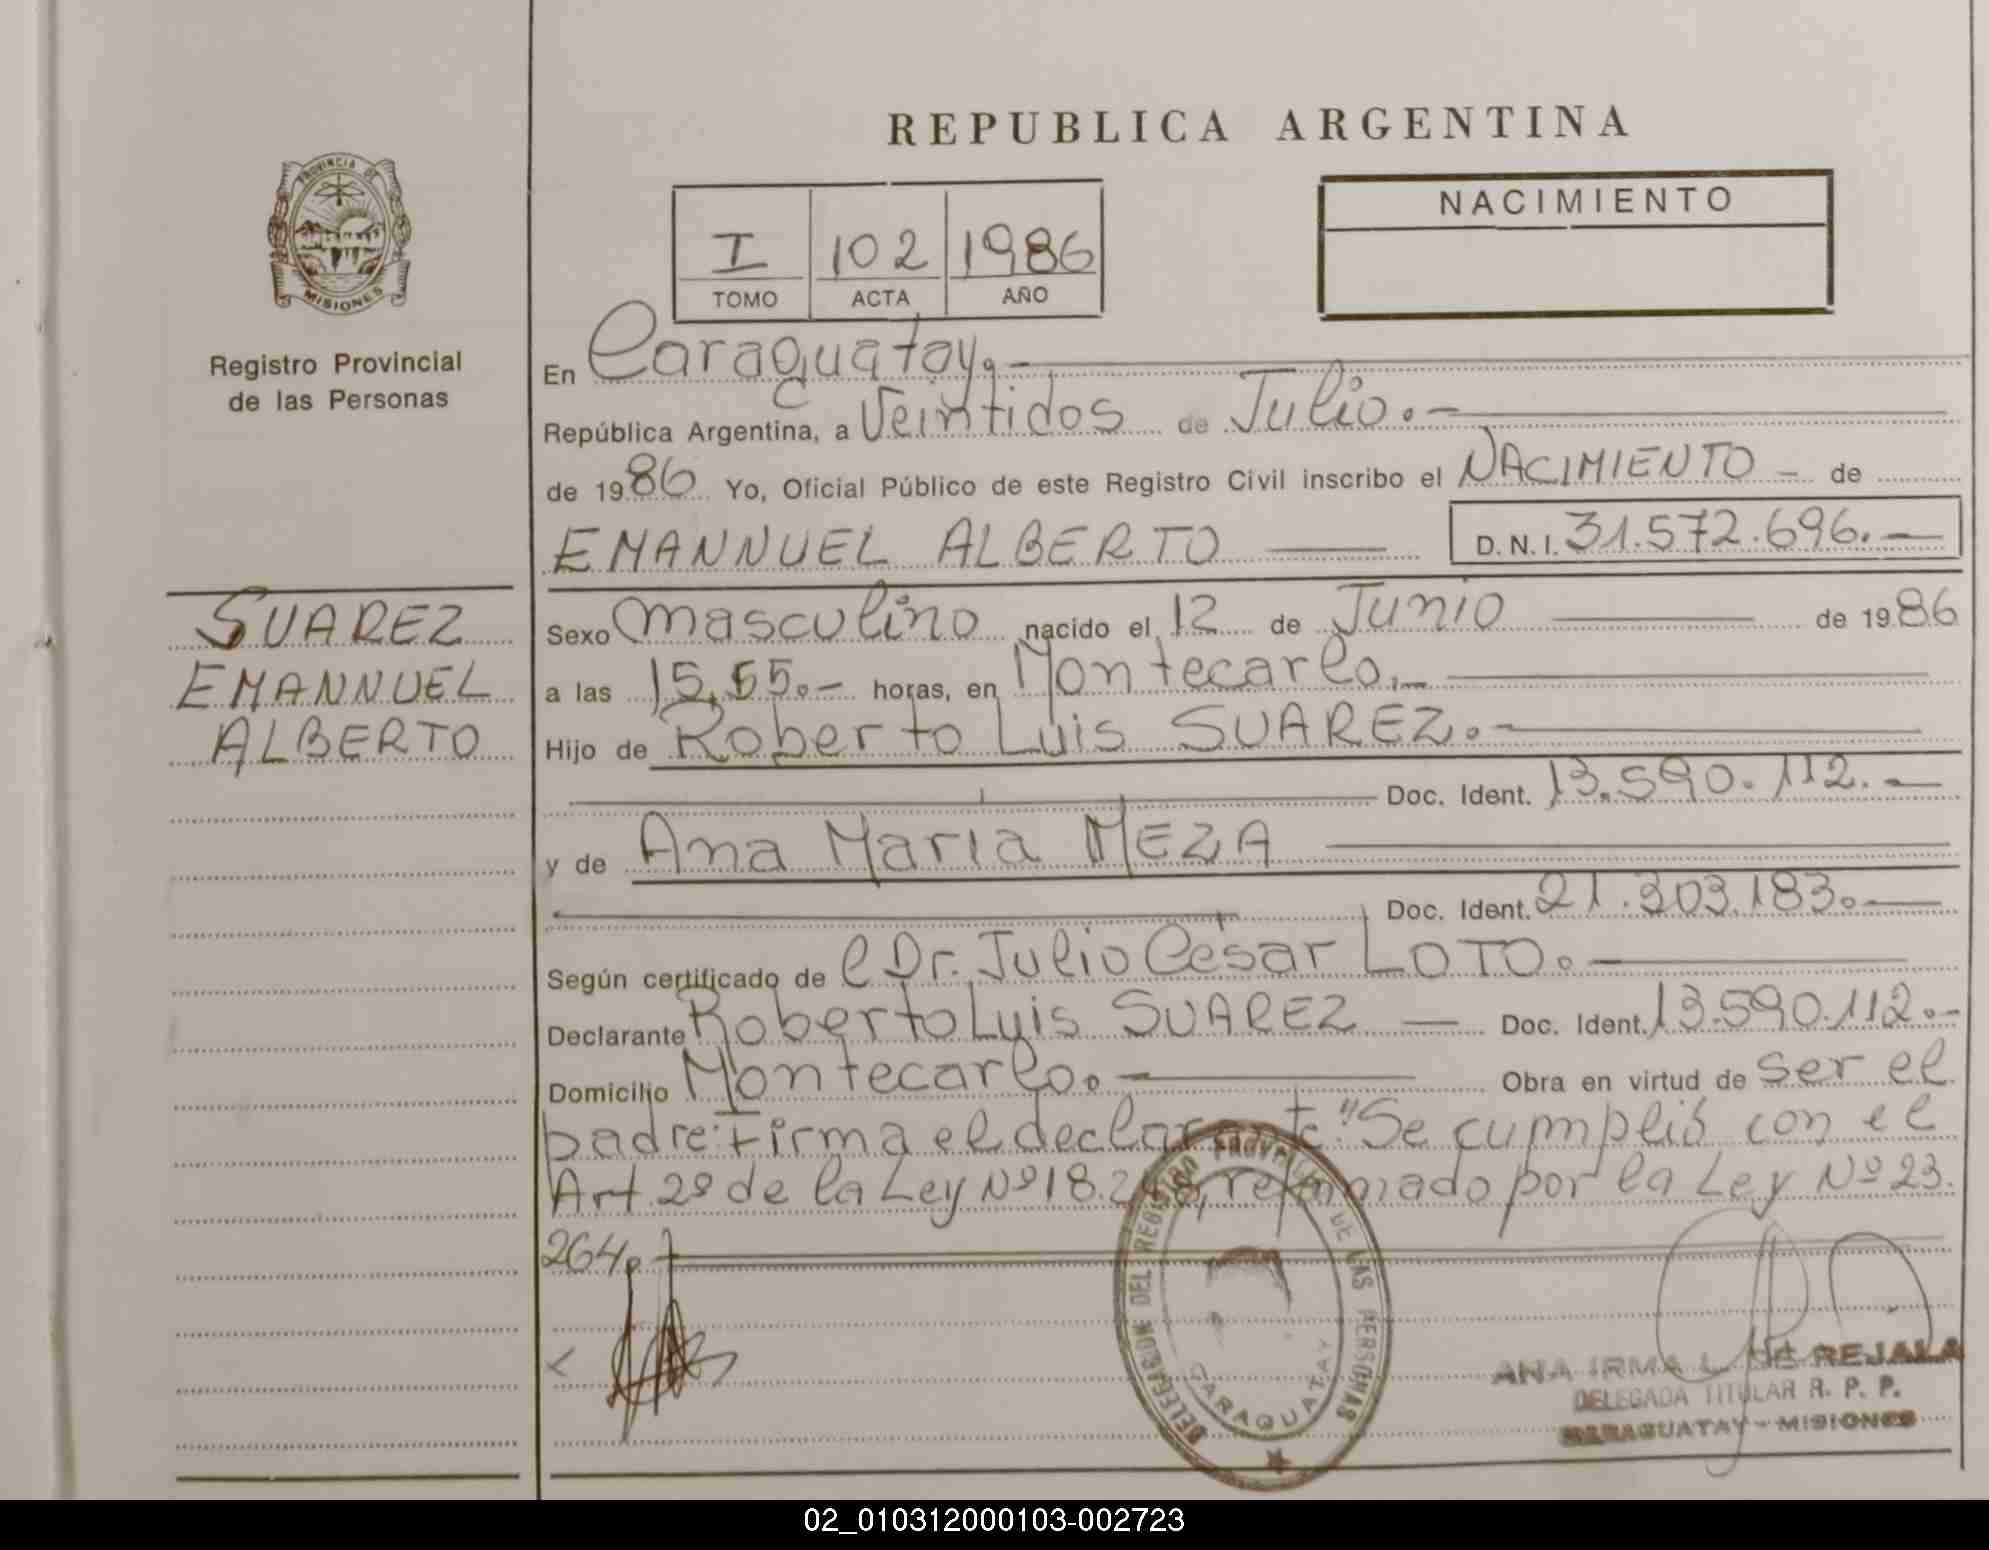 REPUBLICA ARGENTINA
PROVINCIA DE
MISIONES
Registro Provincial
de las Personas
I 102 1986
TOMO ACTA AÑO
NACIMIENTO
En Caraguatay.-
República Argentina, a Veintidos de Julio.-
de 1986 Yo, Oficial Público de este Registro Civil inscribo el NACIMIENTO - de
EMANNUEL ALBERTO — D.N.I. 31.572.696.-
SUAREZ
EMANNUEL
ALBERTO
Sexo masculino nacido el 12 de Junio — de 1986
a las 15,55.- horas, en Montecarlo.-
Hijo de Roberto Luis SUAREZ.-
Doc. Ident. 13.590.112.-
y de Ana Maria MEZA
Doc. Ident. 21.303.183.-
Según certificado de el Dr. Julio César LOTO.-
Declarante Roberto Luis SUAREZ — Doc. Ident. 13.590.112.-
Domicilio Montecarlo.- Obra en virtud de ser el
padre: Firma el declarante: "Se cumplió con el
Art. 2º de la Ley Nº 18.248, reformado por la Ley Nº 23.
264.-
DELEGACION DEL REGISTRO PROVINCIAL DE LAS PERSONAS
CARAGUATAY
ANA IRMA L. DE REJALA
DELEGADA TITULAR R. P. P.
CARAGUATAY - MISIONES
02_010312000103-002723